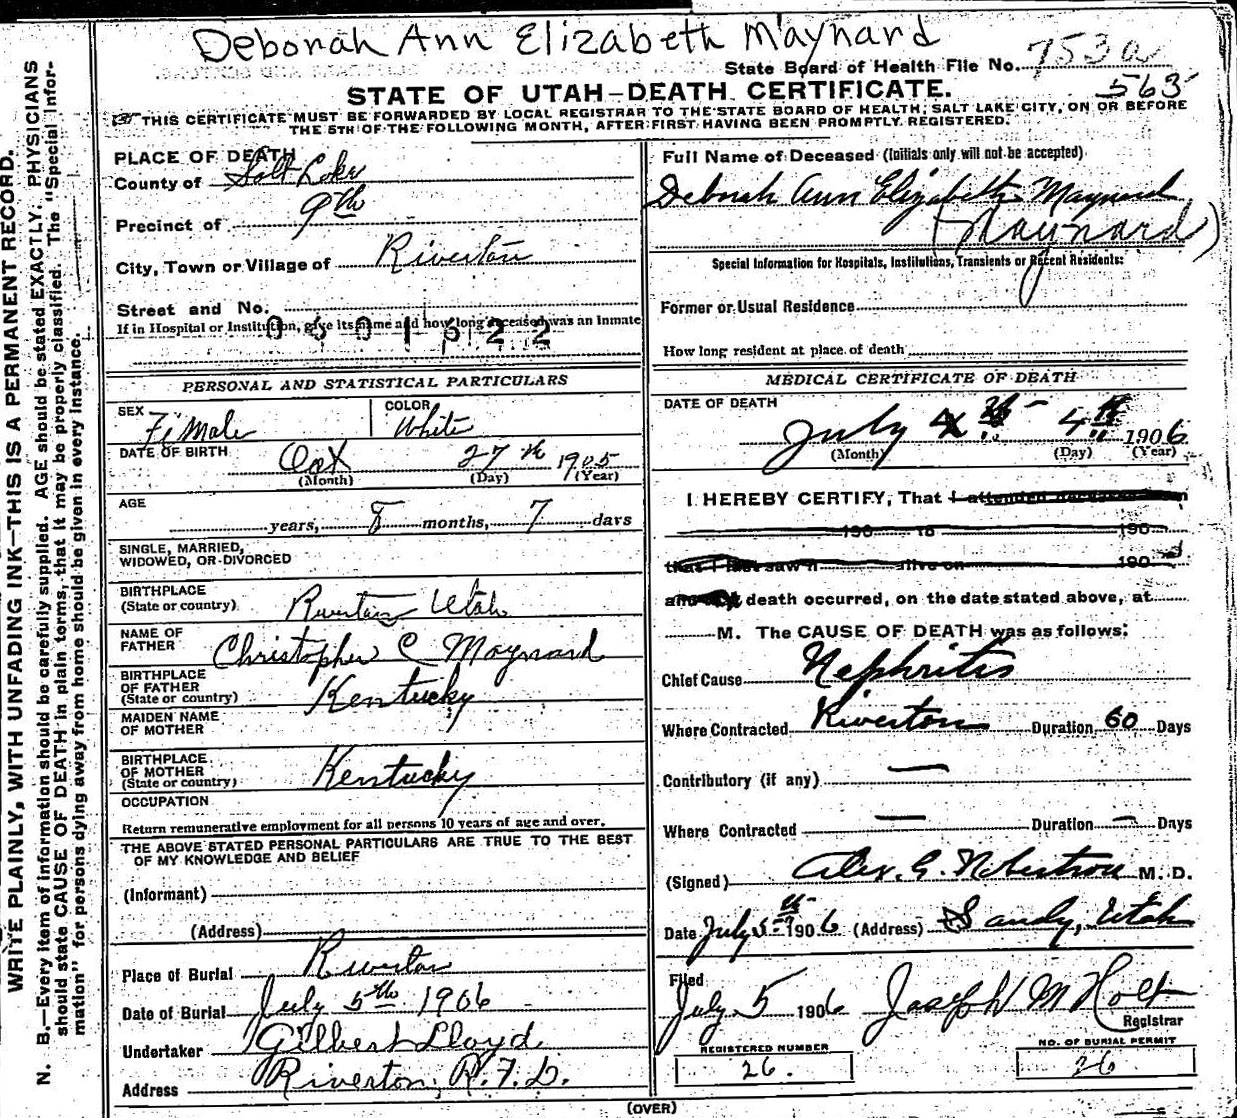 Deborah Ann Elizabeth Maynard
State Board of Health File No. 753a
563
STATE OF UTAH—DEATH CERTIFICATE.
THIS CERTIFICATE MUST BE FORWARDED BY LOCAL REGISTRAR TO THE STATE BOARD OF HEALTH, SALT LAKE CITY, ON OR BEFORE
THE 5TH OF THE FOLLOWING MONTH, AFTER FIRST HAVING BEEN PROMPTLY REGISTERED.
WRITE PLAINLY, WITH UNFADING INK—THIS IS A PERMANENT RECORD.
N. B.—Every item of information should be carefully supplied. AGE should be stated EXACTLY. PHYSICIANS
should state CAUSE OF DEATH in plain terms, that it may be properly classified. The "Special Infor-
mation" for persons dying away from home should be given in every instance.
PLACE OF DEATH
County of Salt Lake
Precinct of 9th
City, Town or Village of Riverton
Street and No.
If in Hospital or Institution, give its name and how long deceased was an Inmate
0601522
PERSONAL AND STATISTICAL PARTICULARS
SEX Female COLOR White
DATE OF BIRTH Oct 27th 1905
(Month) (Day) (Year)
AGE
years, 8 months, 7 days
SINGLE, MARRIED,
WIDOWED, OR DIVORCED
BIRTHPLACE
(State or country) Riverton Utah
NAME OF
FATHER Christopher C Maynard
BIRTHPLACE
OF FATHER
(State or country) Kentucky
MAIDEN NAME
OF MOTHER
BIRTHPLACE
OF MOTHER
(State or country) Kentucky
OCCUPATION
Return remunerative employment for all persons 10 years of age and over.
THE ABOVE STATED PERSONAL PARTICULARS ARE TRUE TO THE BEST
OF MY KNOWLEDGE AND BELIEF
(Informant)
(Address)
Place of Burial Riverton
Date of Burial July 5th 1906
Undertaker Gilbert Lloyd
Address Riverton, R.F.D.
Full Name of Deceased (Initials only will not be accepted)
Deborah Ann Elizabeth Maynard
(Maynard)
Special Information for Hospitals, Institutions, Transients or Recent Residents:
Former or Usual Residence
How long resident at place of death
MEDICAL CERTIFICATE OF DEATH
DATE OF DEATH
July 4th 1906
(Month) (Day) (Year)
I HEREBY CERTIFY, That I attended deceased from
190 to 190
that I last saw h alive on 190
and that death occurred, on the date stated above, at
M. The CAUSE OF DEATH was as follows:
Chief Cause Nephritis
Where Contracted Riverton Duration 60 Days
Contributory (if any) —
Where Contracted — Duration — Days
(Signed) Alex. G. Robertson M. D.
Date July 5th 1906 (Address) Sandy, Utah
Filed
July 5 1906 Joseph M Holt
Registrar
REGISTERED NUMBER
26.
NO. OF BURIAL PERMIT
26
(OVER)